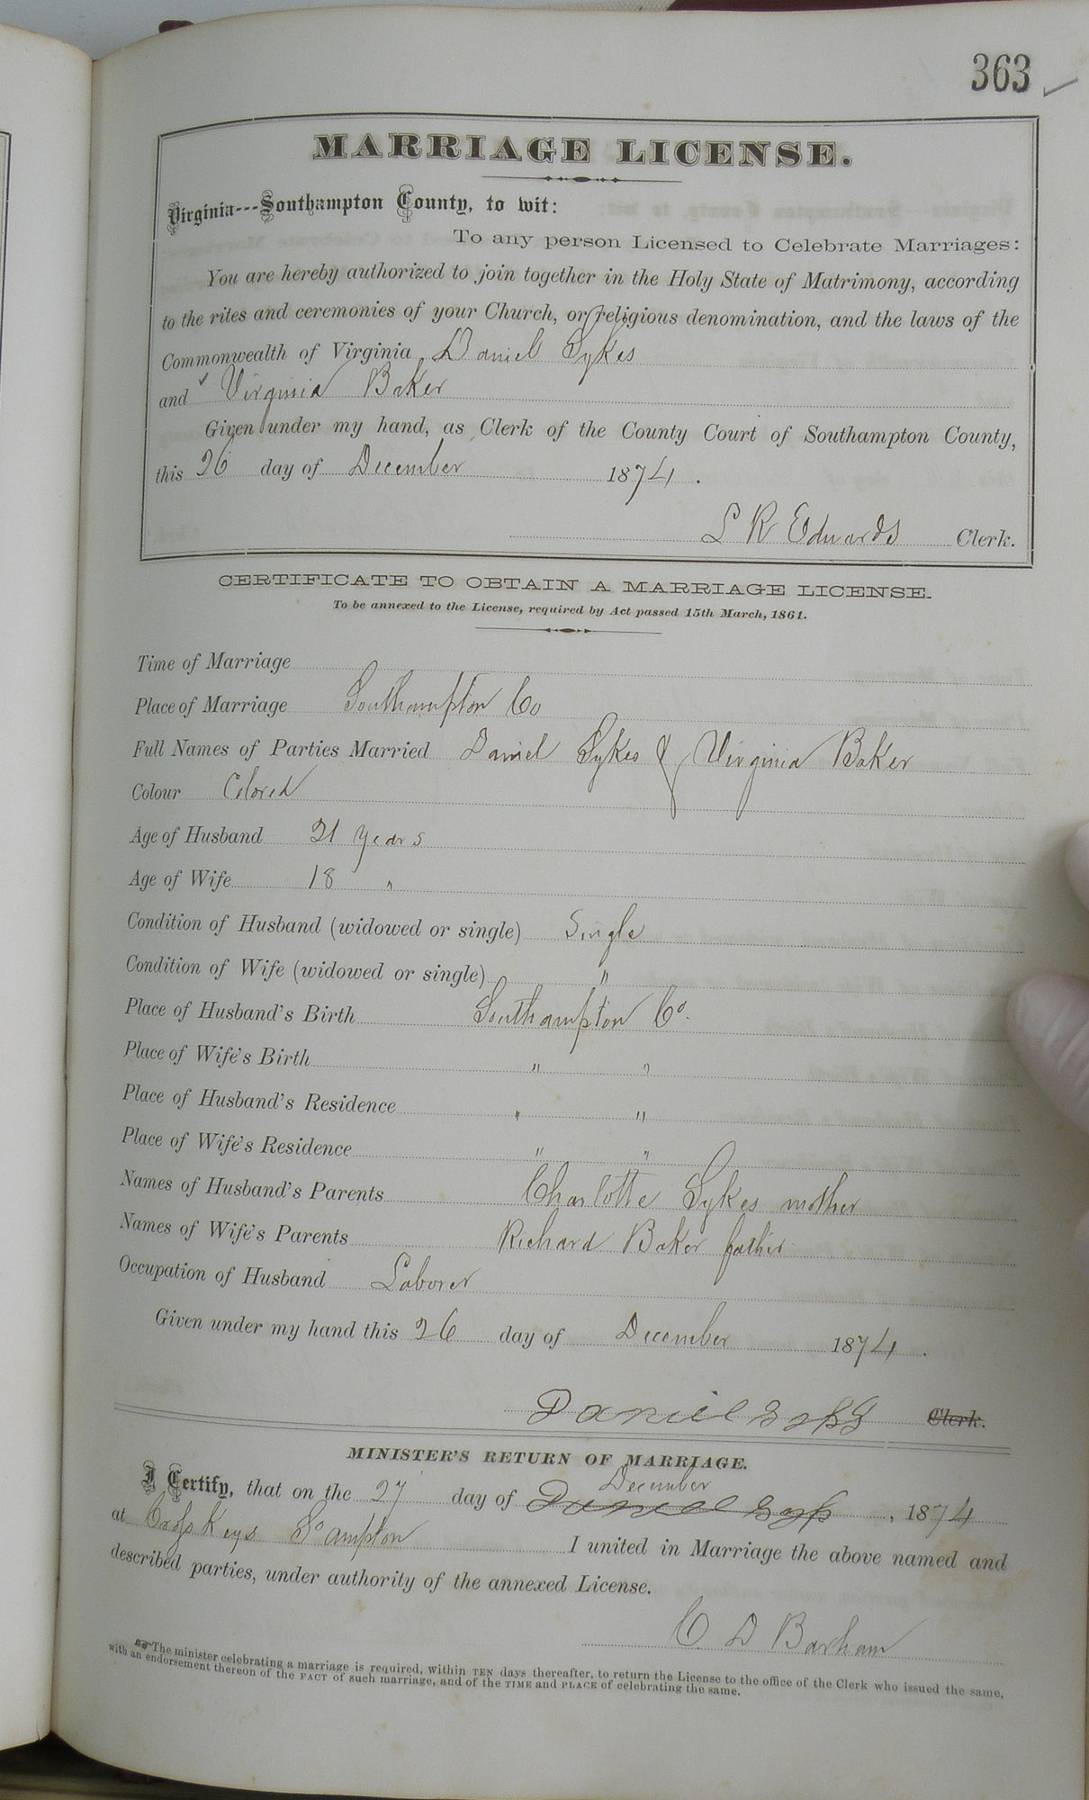 363
MARRIAGE LICENSE.
Virginia---Southampton County, to wit:
To any person Licensed to Celebrate Marriages:
You are hereby authorized to join together in the Holy State of Matrimony, according
to the rites and ceremonies of your Church, or religious denomination, and the laws of the
Commonwealth of Virginia Daniel Sykes
and Virginia Baker
Given under my hand, as Clerk of the County Court of Southampton County,
this 26 day of December 1874.
L R Edwards Clerk.
CERTIFICATE TO OBTAIN A MARRIAGE LICENSE.
To be annexed to the License, required by Act passed 15th March, 1861.
Time of Marriage
Place of Marriage Southampton Co
Full Names of Parties Married Daniel Sykes & Virginia Baker
Colour Colored
Age of Husband 21 years
Age of Wife 18 "
Condition of Husband (widowed or single) Single
Condition of Wife (widowed or single) "
Place of Husband's Birth Southampton Co.
Place of Wife's Birth " "
Place of Husband's Residence " "
Place of Wife's Residence " "
Names of Husband's Parents Charlotte Sykes mother
Names of Wife's Parents Richard Baker father
Occupation of Husband Laborer
Given under my hand this 26 day of December 1874.
Daniel Clerk.
MINISTER'S RETURN OF MARRIAGE.
December
I Certify, that on the 27 day of Daniel , 1874
at Cross Keys So ampton I united in Marriage the above named and
described parties, under authority of the annexed License.
C D Barham
The minister celebrating a marriage is required, within TEN days thereafter, to return the License to the office of the Clerk who issued the same,
with an endorsement thereon of the FACT of such marriage, and of the TIME and PLACE of celebrating the same.